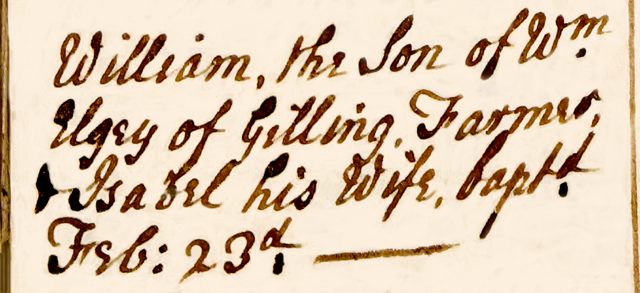 William, the Son of Wm
Elgey of Gilling, Farmer,
& Isabel his Wife, baptd.
Feb: 23d.